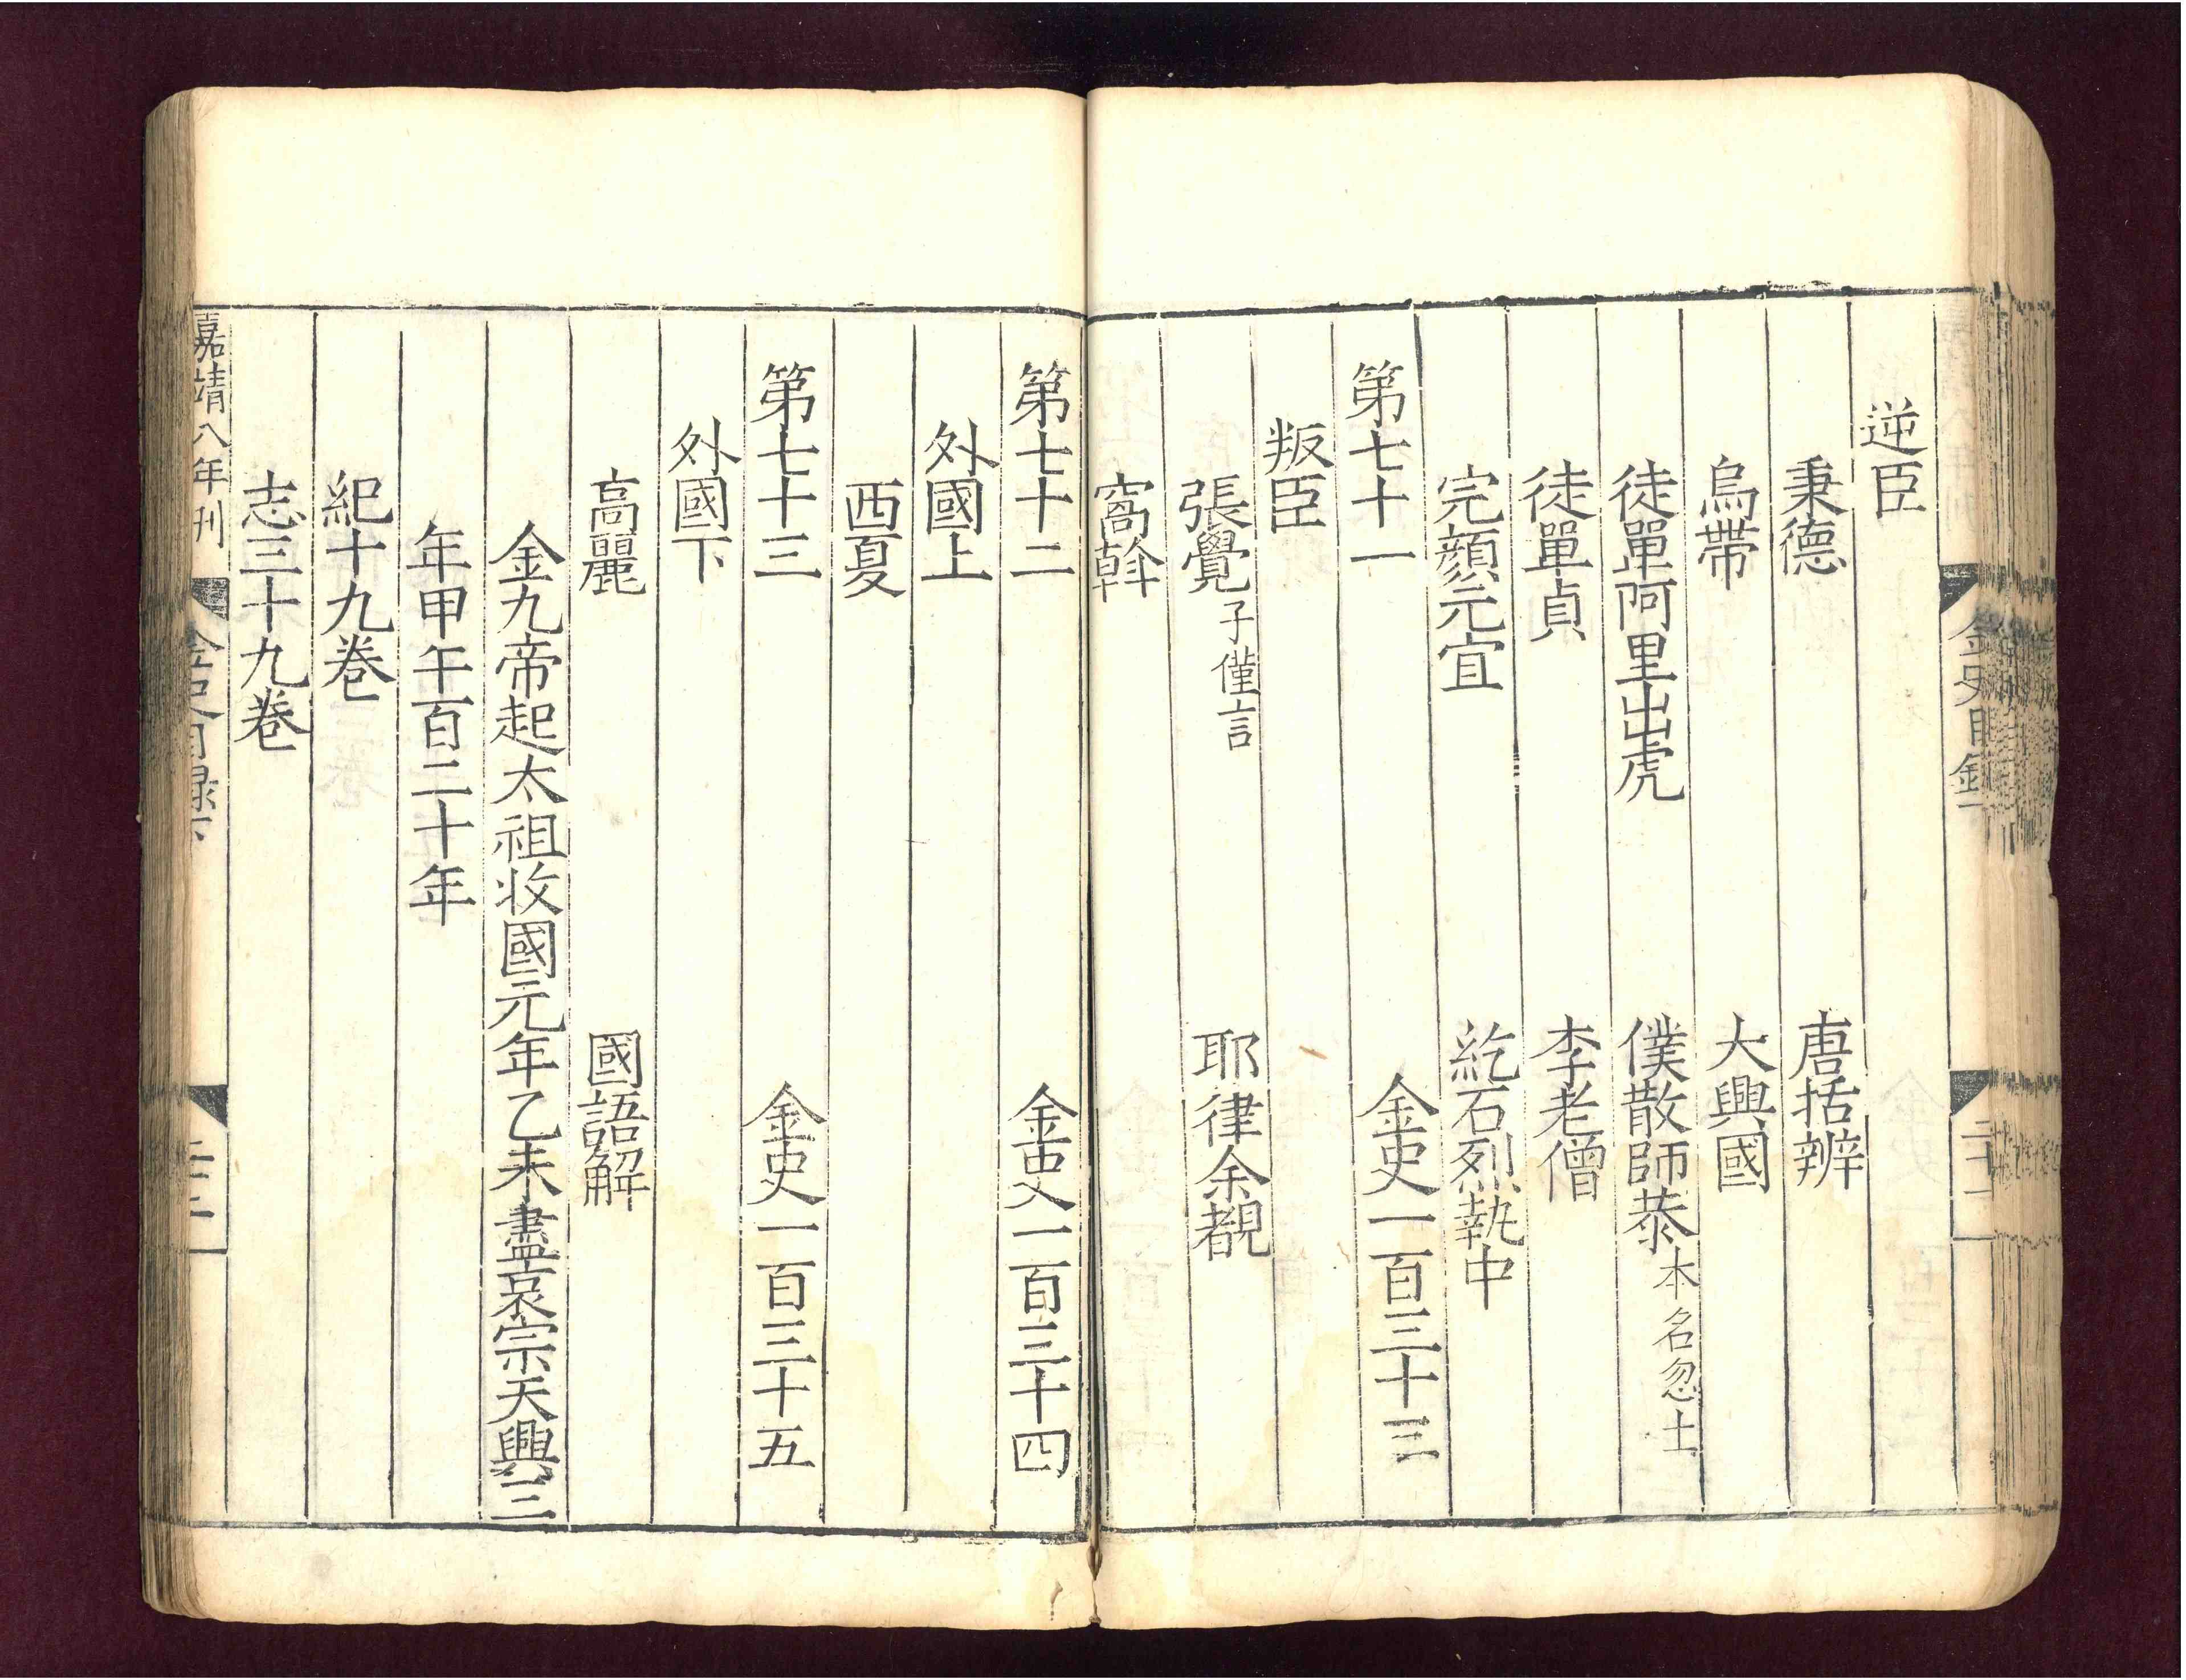 金史目錄
逆臣
秉德 唐括辨
烏帶 大興國
徒單阿里出虎 僕散師恭 本名忽土
徒單貞 李老僧
完顏元宜 紇石烈執中
第七十一 金史一百三十三
叛臣
張覺 子僅言 耶律余覩
窩斡
第七十二 金史一百三十四
外國上
西夏
第七十三 金史一百三十五
外國下
高麗 國語解
金九帝起太祖收國元年乙未盡哀宗天興三
年甲午百二十年
紀十九卷
志三十九卷
嘉靖八年刊 金史目録下